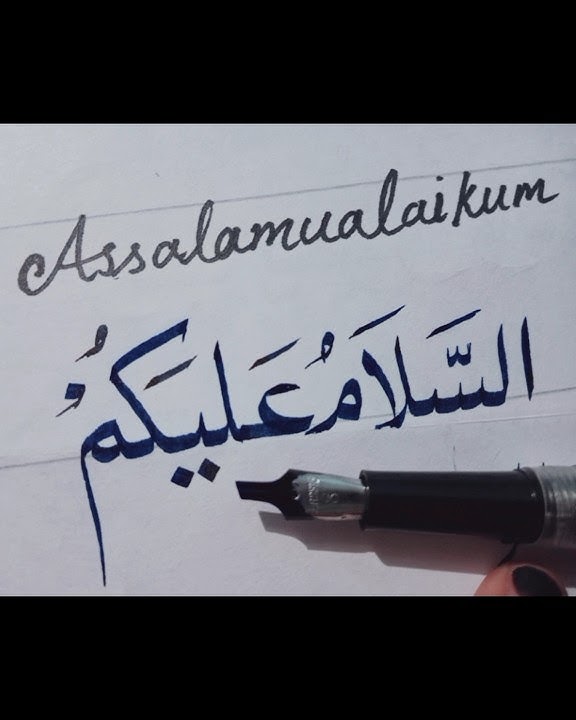 Assalamualaikum
السَّلَامُ عَلَيكُمُ